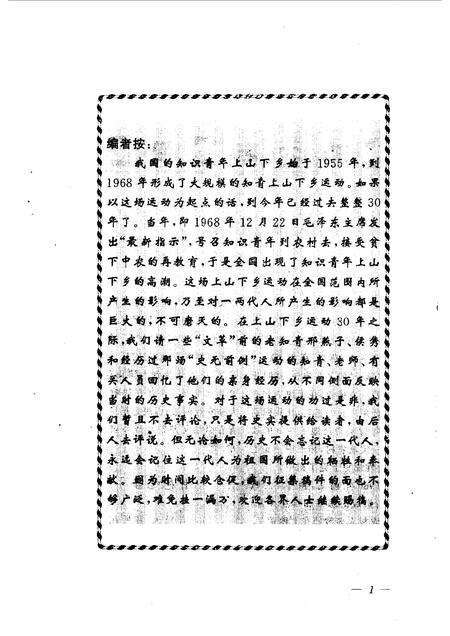 编者按：
我国的知识青年上山下乡始于1955年，到
1968年形成了大规模的知青上山下乡运动。如果
以这场运动为起点的话，到今年已经过去整整30
年了。当年，即1968年12月22日毛泽东主席发
出“最新指示”，号召知识青年到农村去，接受贫
下中农的再教育，于是全国出现了知识青年上山
下乡的高潮。这场上山下乡运动在全国范围内所
产生的影响，乃至对一两代人所产生的影响都是
巨大的，不可磨灭的。在上山下乡运动30年之
际，我们请一些“文革”前的老知青邢燕子、侯隽
和经历过那场“史无前例”运动的知青、老师、有
关人员回忆了他们的亲身经历，从不同侧面反映
当时的历史事实。对于这场运动的功过是非，我
们暂且不去评论，只是将史实提供给读者，由后
人去评说。但无论如何，历史不会忘记这一代人，
永远会记住这一代人为祖国所做出的牺牲和奉
献。因为时间比较仓促，我们征集稿件的面也不
够广泛，难免挂一漏万，欢迎各界人士继续赐稿。
— 1 —